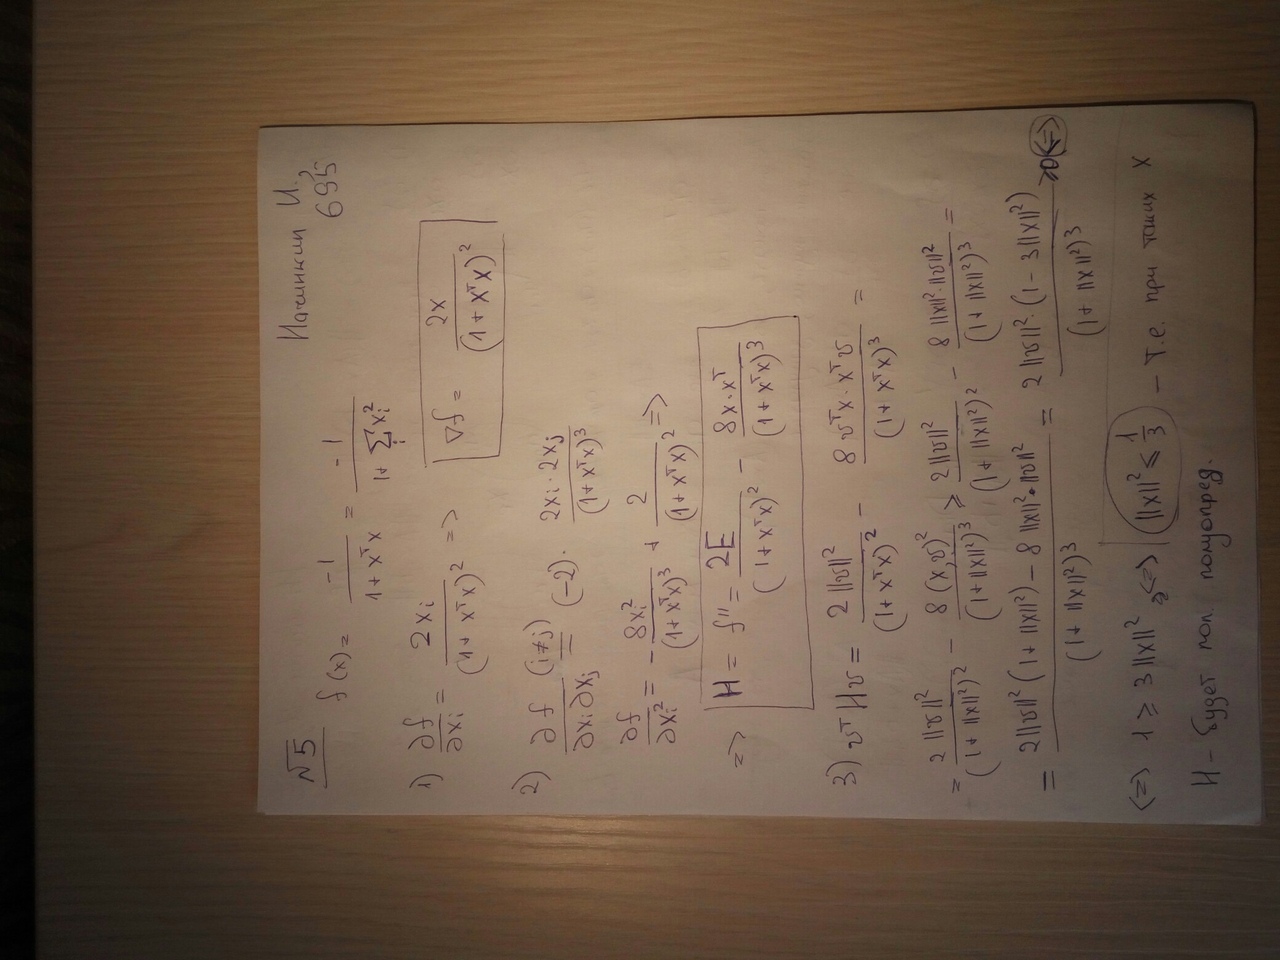 И., 695
№5
f(x) = -1 / (1 + xᵀx) = -1 / (1 + Σᵢ xᵢ²)
1) ∂f/∂xᵢ = 2xᵢ / (1 + xᵀx)² => ∇f = 2x / (1 + xᵀx)²
2) ∂f/∂xᵢ∂xⱼ (i≠j) = (-2) · 2xᵢ · 2xⱼ / (1 + xᵀx)³
∂f/∂xᵢ² = - 8xᵢ² / (1 + xᵀx)³ + 2 / (1 + xᵀx)² =>
=> H = f'' = 2E / (1 + xᵀx)² - 8x·xᵀ / (1 + xᵀx)³
3) vᵀHv = 2||v||² / (1 + xᵀx)² - 8vᵀx·xᵀv / (1 + xᵀx)³ =
= 2||v||² / (1 + ||x||²)² - 8(x,v)² / (1 + ||x||²)³ ≥ 2||v||² / (1 + ||x||²)² - 8||x||²·||v||² / (1 + ||x||²)³ =
= (2||v||²(1 + ||x||²) - 8||x||²·||v||²) / (1 + ||x||²)³ = 2||v||²·(1 - 3||x||²) / (1 + ||x||²)³ ≥0 <=>
<=> 1 ≥ 3||x||² <=> ||x||² ≤ 1/3 - т.е. при таких x
H - будет пол. полуопред.